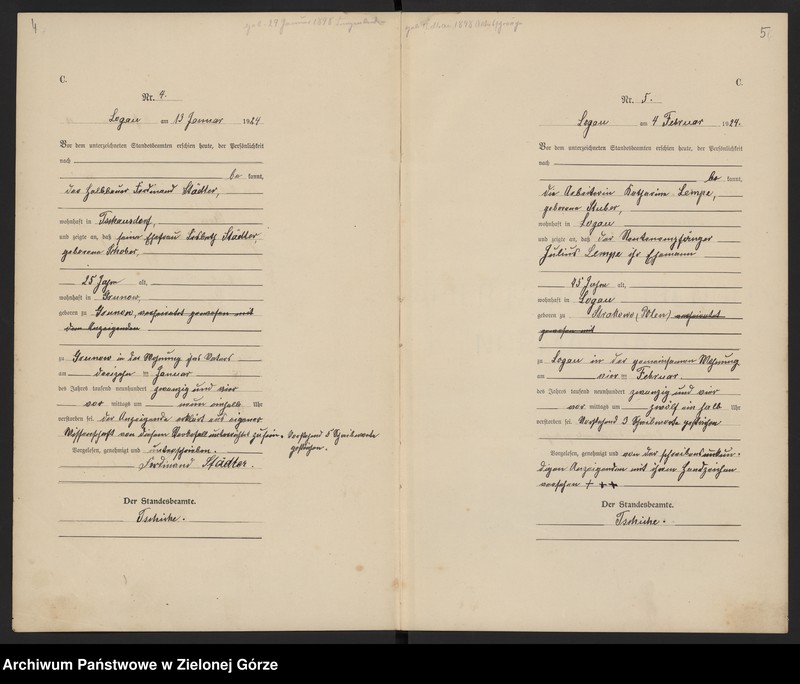 4
C.
Nr. 4.
Logau am 13 Januar 1924
Vor dem unterzeichneten Standesbeamten erschien heute, der Persönlichkeit
nach
be kannt,
der Halbbauer Ferdinand Städter,
wohnhaft in
und zeigte an, daß seine Ehefrau Städter,
geborene
25 Jahr alt,
wohnhaft in Grunow,
geboren zu Grunow, verheiratet gewesen mit
dem Anzeigenden
zu Grunow in der Wohnung ihres Vaters
am dreizehn ten Januar
des Jahres tausend neunhundert zwanzig und vier
vor mittags um neun einhalb Uhr
verstorben sei. Der Anzeigende erklärt aus eigener
Wissenschaft von diesem Sterbefall unterrichtet zu sein. Vorstehend 5 Schreibworte
gestrichen.
Vorgelesen, genehmigt und unterschrieben.
Ferdinand Städter.
Der Standesbeamte.
Tschiche.
5
C.
Nr. 5.
Logau am 4 Februar 1924.
Vor dem unterzeichneten Standesbeamten erschien heute, der Persönlichkeit
nach
be kannt,
die Arbeiterin Katharina Lempe,
geborene
wohnhaft in Logau
und zeigte an, daß der Rentenempfänger
Julius Lempe ihr Ehemann
45 Jahre alt,
wohnhaft in Logau
geboren zu (Polen) verheiratet
gewesen mit
zu Logau in der gemeinsamen Wohnung
am vier ten Februar
des Jahres tausend neunhundert zwanzig und vier
vor mittags um zwölf ein halb Uhr
verstorben sei. Vorstehend 3 Schreibworte gestrichen
Vorgelesen, genehmigt und von der schreibensunkun-
digen Anzeigenden mit ihrem Handzeichen
versehen + ++
Der Standesbeamte.
Tschiche.
Archiwum Państwowe w Zielonej Górze